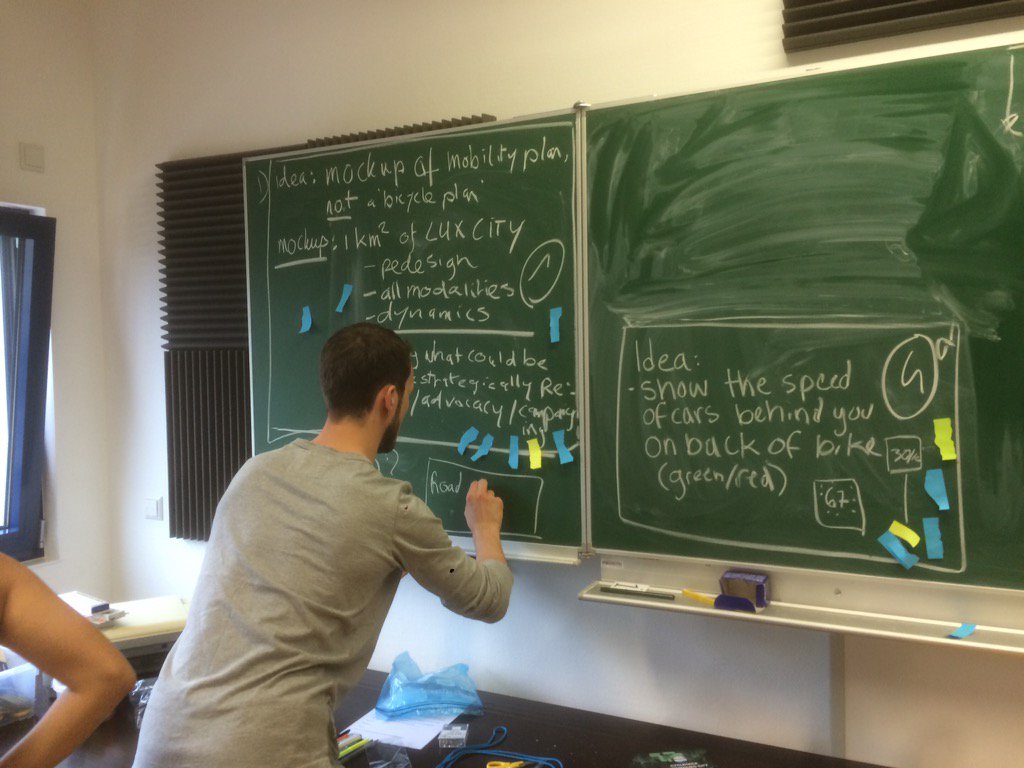 1) idea: mockup of mobility plan,
not a 'bicycle plan'
mockup: 1 km² of LUX CITY
- redesign
- all modalities
- dynamics
1
what could be
strategically Re:
/advocacy/campaign
ing
?
hoad
Idea:
- show the speed
of cars behind you
on back of bike
(green/red)
4
67